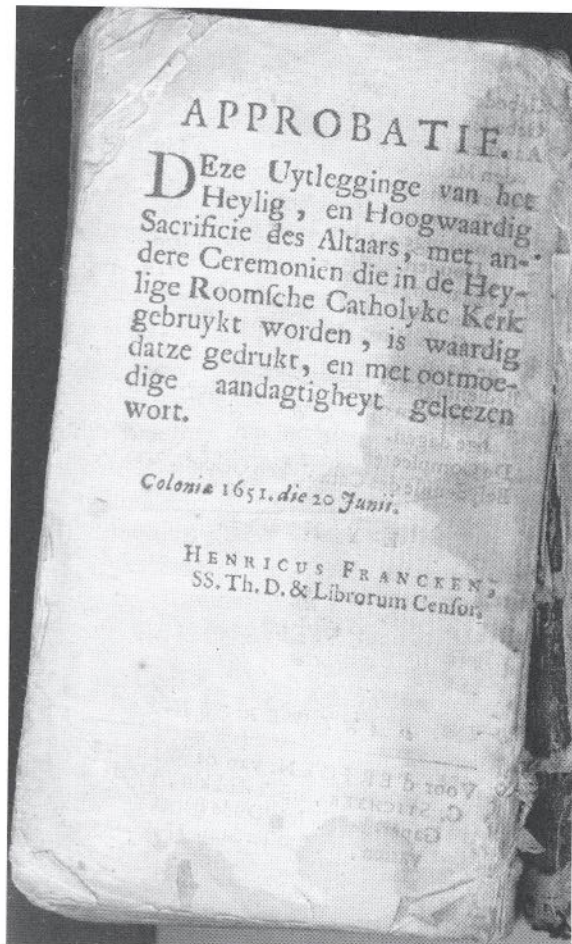 APPROBATIE.
DEze Uytlegginge van het
Heylig, en Hoogwaardig
Sacrificie des Altaars, met an-
dere Ceremonien die in de Hey-
lige Roomſche Catholyke Kerk
gebruykt worden, is waardig
datze gedrukt, en met ootmoe-
dige aandagtigheyt geleezen
wort.
Coloniæ 1651. die 20 Junii.
HENRICUS FRANCKEN,
SS. Th. D. & Librorum Cenſor.